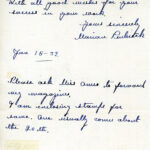 With all good wishes for your
success in your work.
Yours sincerely
Marian
Jan 18-37
Please ask Miss
to forward
my magazine
I am enclosing stamps for
same. One usually comes about
the 20th.